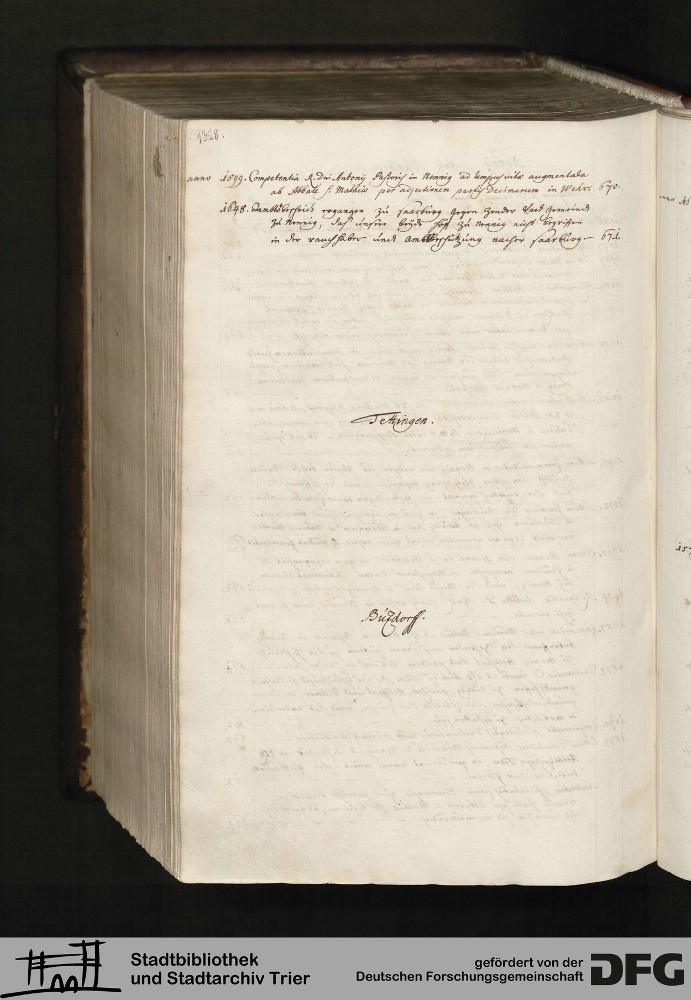 1328.
anno 1599. Competentia R. Dni Antonij Pastoris in Nennig ad tempus vitæ augmentata
ab Abbate S. Mathiæ per adjectionem partis Decimarum in Wehr. 670.
1648. Ambtsbescheidt ergangen zu Saarburg gegen Zender undt Gemeindt
zu Nennig, daß unsere beyde Höff zu Nennig nicht begriffen
in der rauchhaber undt Ambts schützung nacher Saarburg. 671.
Tettingen.
Büzdorff.
Stadtbibliothek
und Stadtarchiv Trier
gefördert von der
Deutschen Forschungsgemeinschaft
DFG